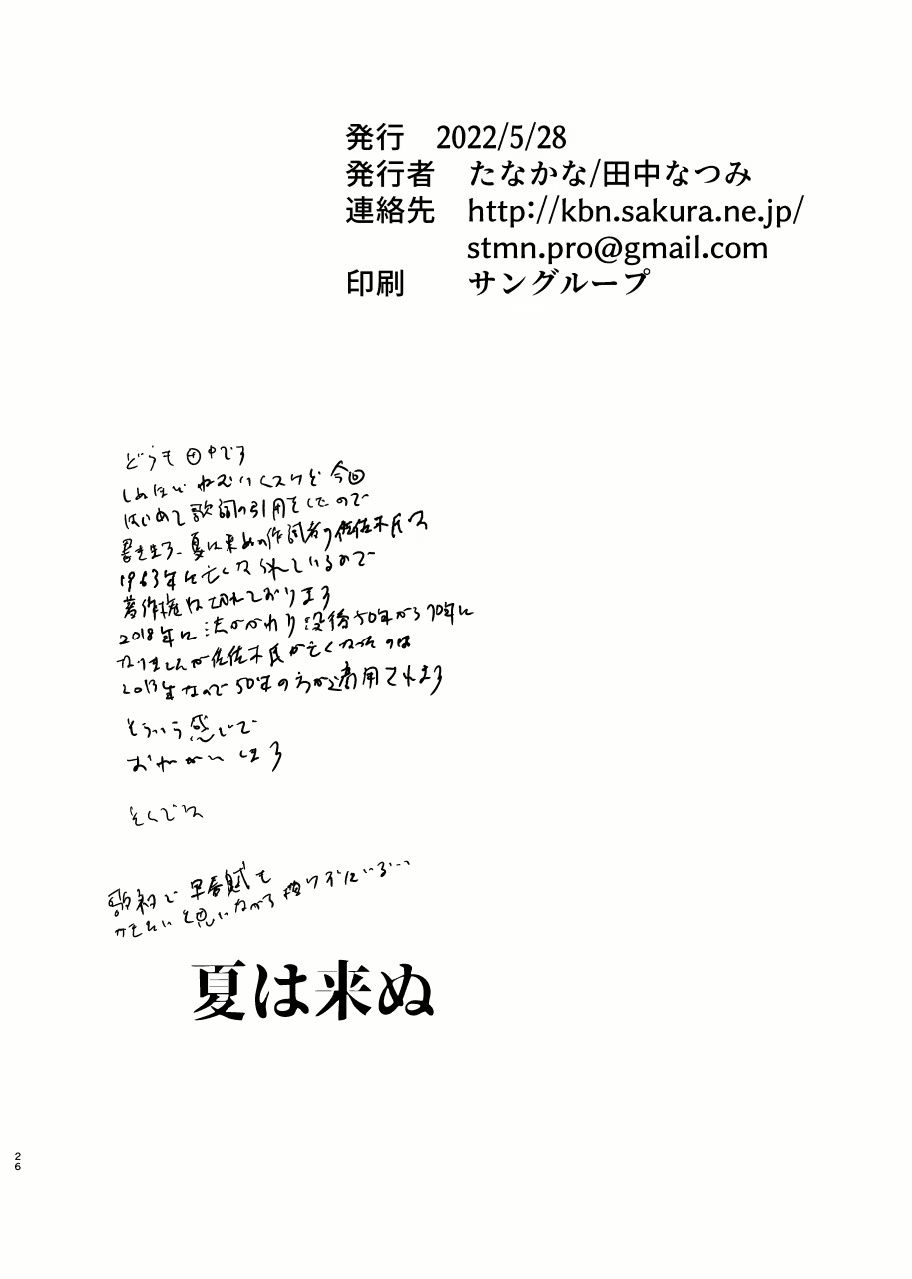 発行 2022/5/28
発行者 たなかな/田中なつみ
連絡先 http://kbn.sakura.ne.jp/
stmn.pro@gmail.com
印刷 サングループ
どうも田中です
しぬほどねむいくスけど今回
はじめて歌詞の引用をしたので
書きます、夏は来ぬの作詞者の佐佐木氏は
1963年に亡くなられているので
著作権は切れております
2018年に法がかわり没後50年から70年に
なりましたが佐佐木氏が亡くなったのは
2013年なので50年の方が適用されます
そういう感じで
おねがいします
そんでは
早春賦も
と思いながら
夏は来ぬ
26